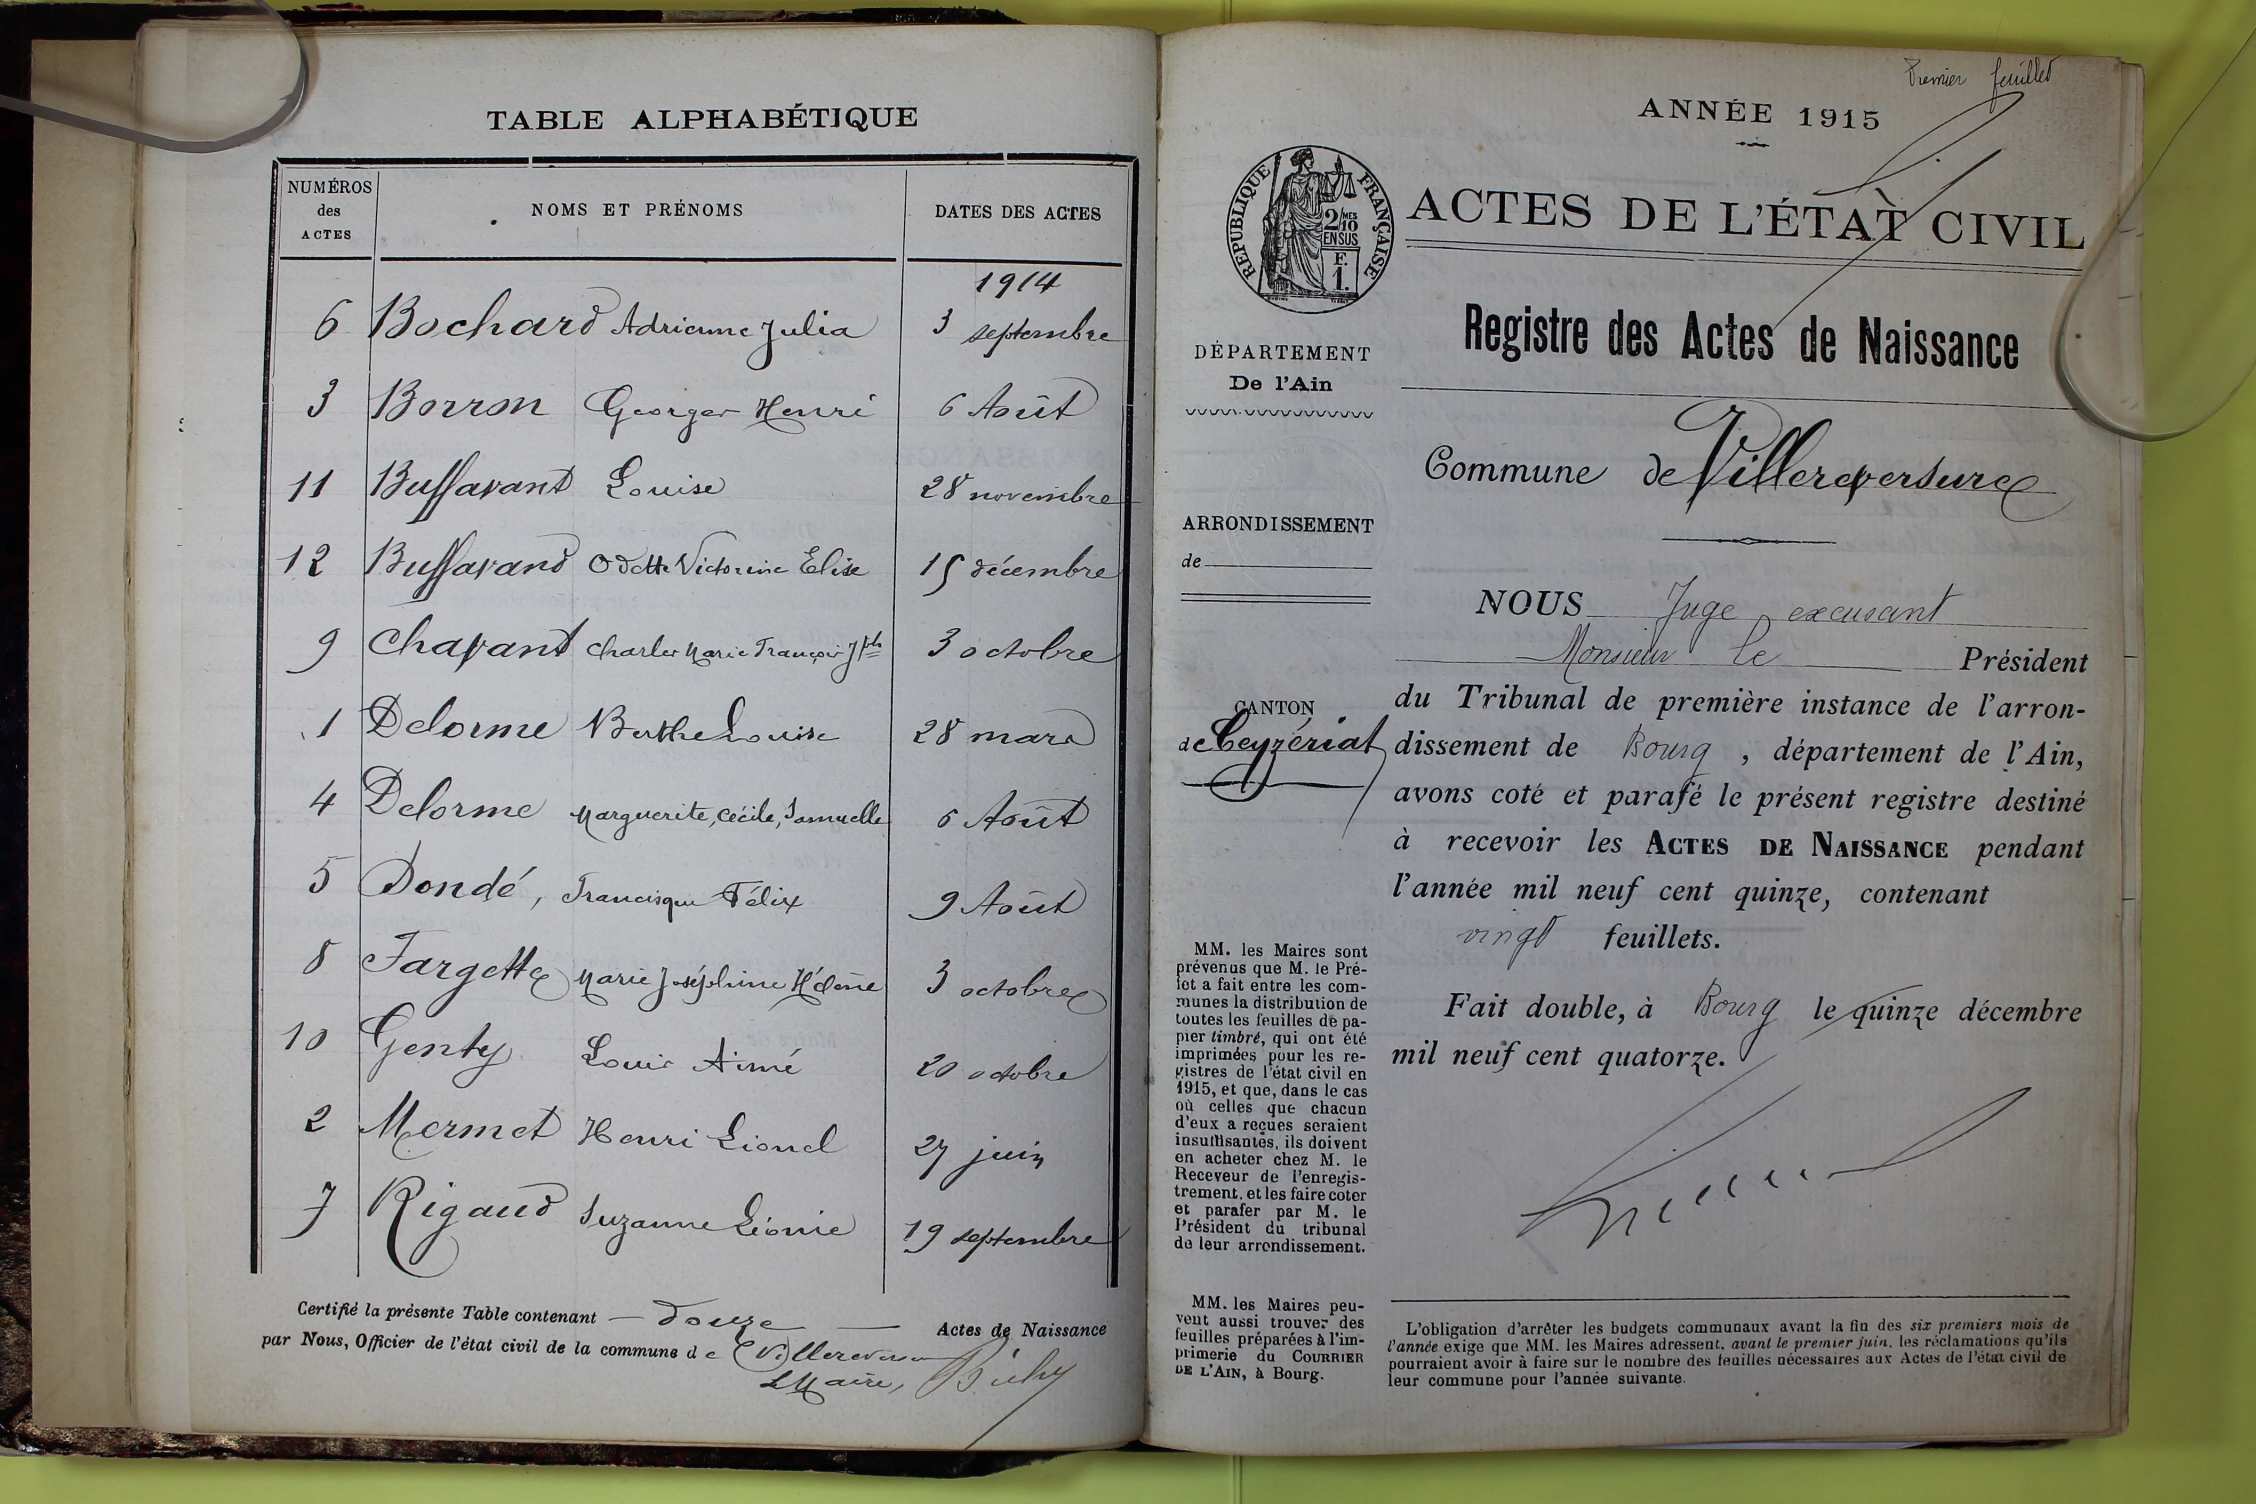 TABLE ALPHABÉTIQUE
NUMÉROS des ACTES NOMS ET PRÉNOMS DATES DES ACTES
1914
6 Bochard Adrienne Julia 3 septembre
3 Borron Georges Henri 6 Août
11 Buffavant Louise 28 novembre
12 Buffavand Odette Victorine Elise 15 décembre
9 Chavant Charles Marie François Jph 3 octobre
1 Delorme Berthe Louise 28 mars
4 Delorme Marguerite, Cécile, Samuelle 6 Août
5 Dondé, Francisque Félix 9 Août
8 Fargette Marie Joséphine Hélène 3 octobre
10 Genty Louis Aimé 20 octobre
2 Mermet Henri Lionel 27 juin
7 Rigaud Suzanne Léonie 19 septembre
Certifié la présente Table contenant — douze — Actes de Naissance
par Nous, Officier de l'état civil de la commune de Villereversure
Le Maire,
Premier feuillet
ANNÉE 1915
RÉPUBLIQUE FRANÇAISE
2/10 MES
EN SUS
F.
1.
ACTES DE L'ÉTAT CIVIL
Registre des Actes de Naissance
DÉPARTEMENT
De l'Ain
Commune de Villereversure
ARRONDISSEMENT
de
CANTON
de Ceyzériat
NOUS Juge excusant
Monsieur le Président
du Tribunal de première instance de l'arron-
dissement de Bourg, département de l'Ain,
avons coté et parafé le présent registre destiné
à recevoir les ACTES DE NAISSANCE pendant
l'année mil neuf cent quinze, contenant
vingt feuillets.
Fait double, à Bourg le quinze décembre
mil neuf cent quatorze.
MM. les Maires sont
prévenus que M. le Pré-
fet a fait entre les com-
munes la distribution de
toutes les feuilles de pa-
pier timbré, qui ont été
imprimées pour les re-
gistres de l'état civil en
1915, et que, dans le cas
où celles que chacun
d'eux a reçues seraient
insuffisantes, ils doivent
en acheter chez M. le
Receveur de l'enregis-
trement, et les faire coter
et parafer par M. le
Président du tribunal
de leur arrondissement.
MM. les Maires peu-
vent aussi trouver des
feuilles préparées à l'im-
primerie du COURRIER
DE L'AIN, à Bourg.
L'obligation d'arrêter les budgets communaux avant la fin des six premiers mois de
l'année exige que MM. les Maires adressent, avant le premier juin, les réclamations qu'ils
pourraient avoir à faire sur le nombre des feuilles nécessaires aux Actes de l'état civil de
leur commune pour l'année suivante.